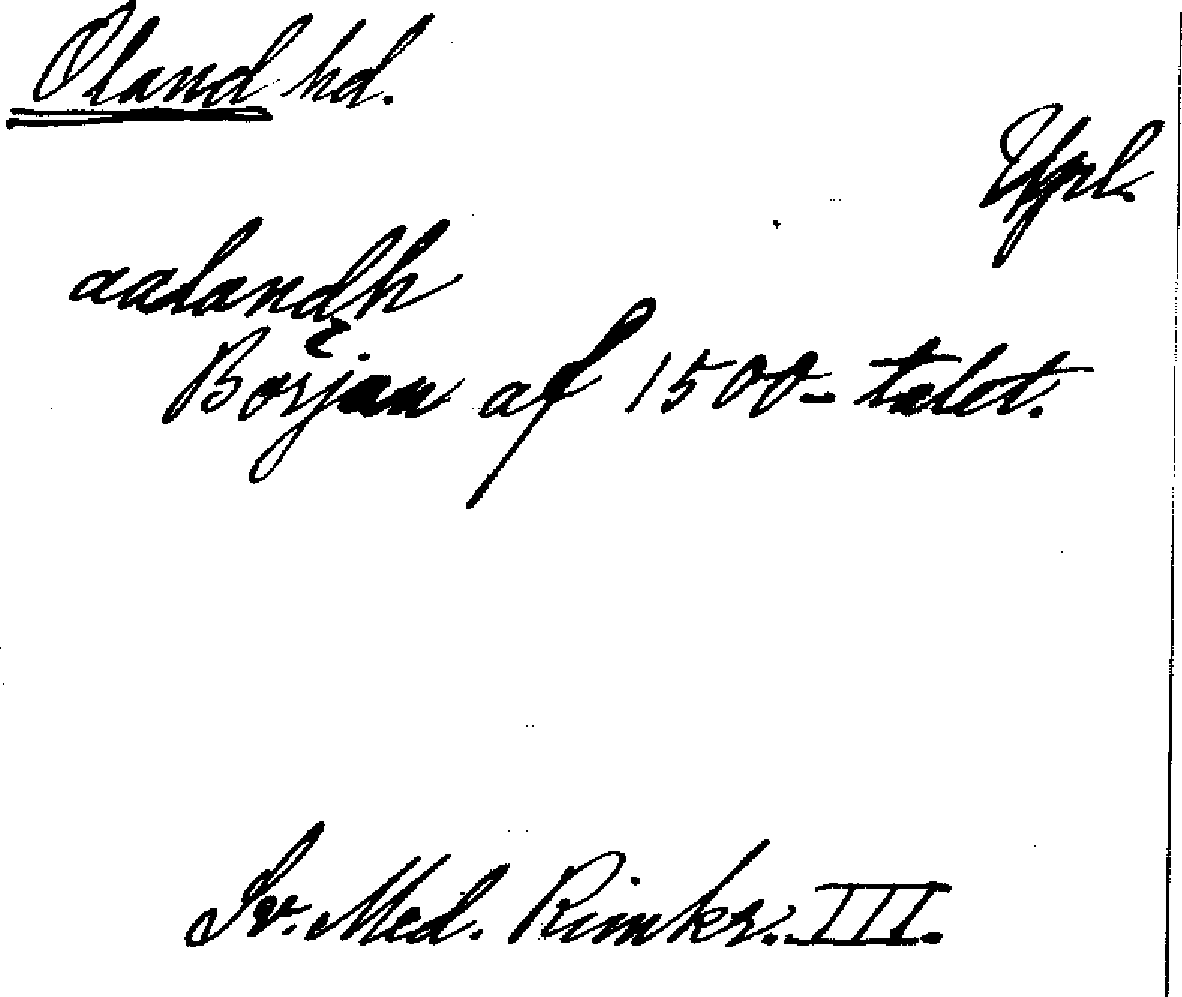 Oland hd.
Upl.
aalandh
Början af 1500-talet.
Sv. Med. Rimkr. III.